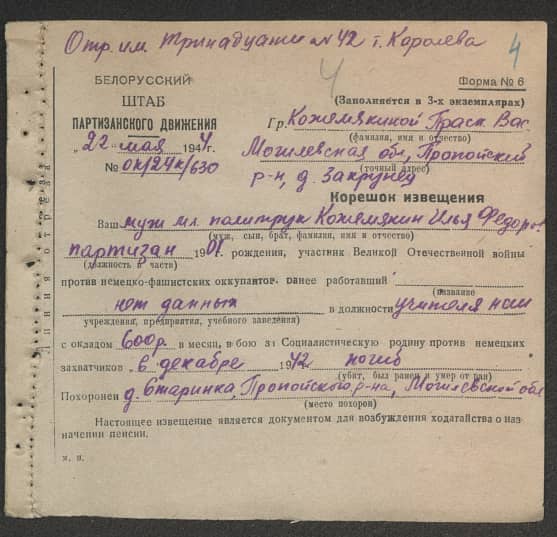 Отр. им. Тринадцати № 42 т. Королева
4
4
БЕЛОРУССКИЙ
ШТАБ
ПАРТИЗАНСКОГО ДВИЖЕНИЯ
„22 мая 1944г.
№ ок/24к/630
Форма № 6
(Заполняется в 3-х экземплярах)
Гр. Кожемякиной Праск Вас.
(фамилия, имя и отчество)
Могилевская обл, Пропойский
(точный адрес)
р-н, д. Закрупец
Корешок извещения
Ваш муж мл. политрук Кожемякин Илья Федоров
(муж, сын, брат, фамилия, имя и отчество)
партизан 1901 рождения, участник Великой Отечественной войны
(должность в части)
против немецко-фашистских оккупантов, ранее работавший
(название
нет данных в должности учителя нсш
учреждения, предприятия, учебного заведения)
с окладом 600р. в месяц, в бою за Социалистическую родину против немецких
захватчиков 6 декабре 1942 погиб
(убит, был ранен и умер от ран)
Похоронен д. Старинка, Пропойского р-на, Могилевской обл
(место похорон)
Настоящее извещение является документом для возбуждения ходатайства о наз-
начении пенсии.
м. п.
Линия отреза